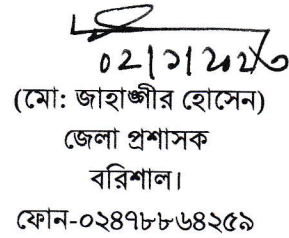 ০২/১/২০২৩
(মো: জাহাঙ্গীর হোসেন)
জেলা প্রশাসক
বরিশাল।
ফোন-০২৪৭৮৮৬৪২৫৯